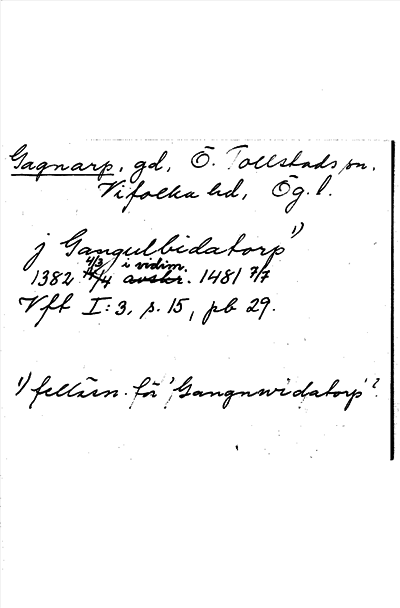 Gagnarp, gd, Ö. Tollstads sn.
Vifolka hd, Ög. l.
j Gangulbidatorp¹)
4/3 i vidim.
1382 avskr. 1481 7/7
Vft I:3, s. 15, pb 29.
¹) felläsn. för 'Gangnwidatorp'?